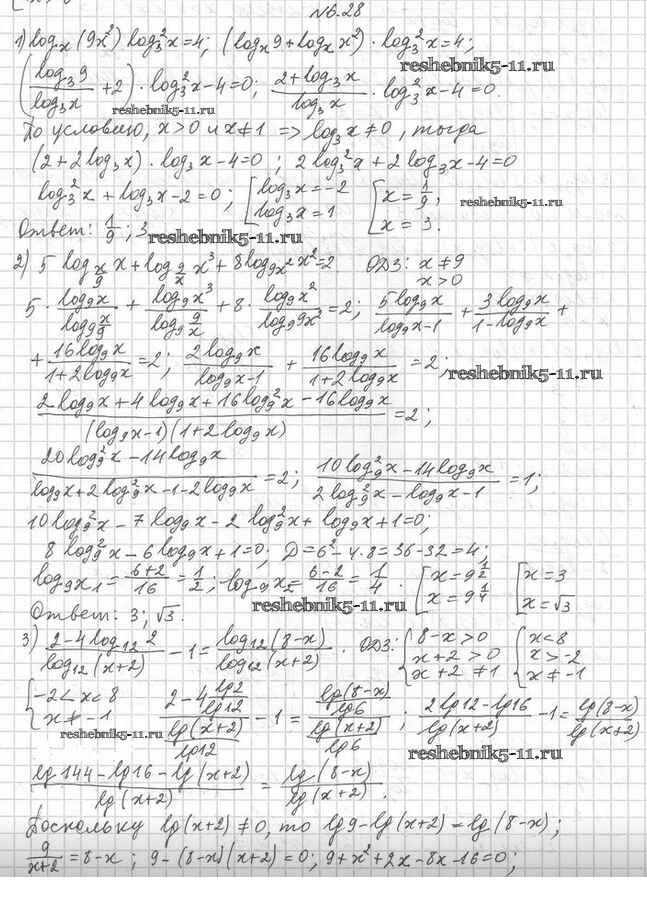 №6.28
1) log_x (9x²) log₃²x=4; (log_x 9+log_x x²) · log₃²x=4;
reshebnik5-11.ru
(log₃9/log₃x +2) · log₃²x-4=0; (2+log₃x)/log₃x · log₃²x-4=0.
reshebnik5-11.ru
По условию, x>0 и x≠1 => log₃x≠0, тогда
(2+2log₃x) · log₃x-4=0; 2log₃²x+2log₃x-4=0
log₃²x+log₃x-2=0; [log₃x=-2 log₃x=1 [x=1/9, x=3.
reshebnik5-11.ru
Ответ: 1/9; 3
reshebnik5-11.ru
2) 5 log_(x/9) x+log_(9/x) x³+8log_(9x²) x²=2 ОДЗ: x≠9 x>0
5 · log₉x/log₉(x/9) + log₉x³/log₉(9/x) +8 · log₉x²/log₉9x²=2; 5log₉x/(log₉x-1) + 3log₉x/(1-log₉x) +
+ 16log₉x/(1+2log₉x)=2; 2log₉x/(log₉x-1) + 16log₉x/(1+2log₉x) =2;
reshebnik5-11.ru
(2log₉x+4log₉x+16log₉²x-16log₉x)/((log₉x-1)(1+2log₉x)) =2;
(20log₉²x-14log₉x)/(log₉x+2log₉²x-1-2log₉x)=2; (10log₉²x-14log₉x)/(2log₉²x-log₉x-1)=1;
10log₉²x-7log₉x-2log₉²x+log₉x+1=0;
8log₉²x-6log₉x+1=0; D=6²-4·8=36-32=4;
log₉x₁=(6+2)/16=1/2; log₉x₂=(6-2)/16=1/4. [x=9^(1/2) x=9^(1/4) [x=3 x=√3
reshebnik5-11.ru
Ответ: 3; √3.
3) (2-4log₁₂2)/log₁₂(x+2) -1=log₁₂(8-x)/log₁₂(x+2). ОДЗ: {8-x>0 x+2>0 x+2≠1 {x<8 x>-2 x≠-1
{-2<x<8 x≠-1 (2-4 lg2/lg12)/(lg(x+2)/lg12) -1=(lg(8-x)/lg6)/(lg(x+2)/lg6); (2lg12-lg16)/lg(x+2) -1=lg(8-x)/lg(x+2)
reshebnik5-11.ru
reshebnik5-11.ru
(lg144-lg16-lg(x+2))/lg(x+2) = lg(8-x)/lg(x+2).
Поскольку lg(x+2)≠0, то lg9-lg(x+2)=lg(8-x);
9/(x+2)=8-x; 9-(8-x)(x+2)=0; 9+x²+2x-8x-16=0;